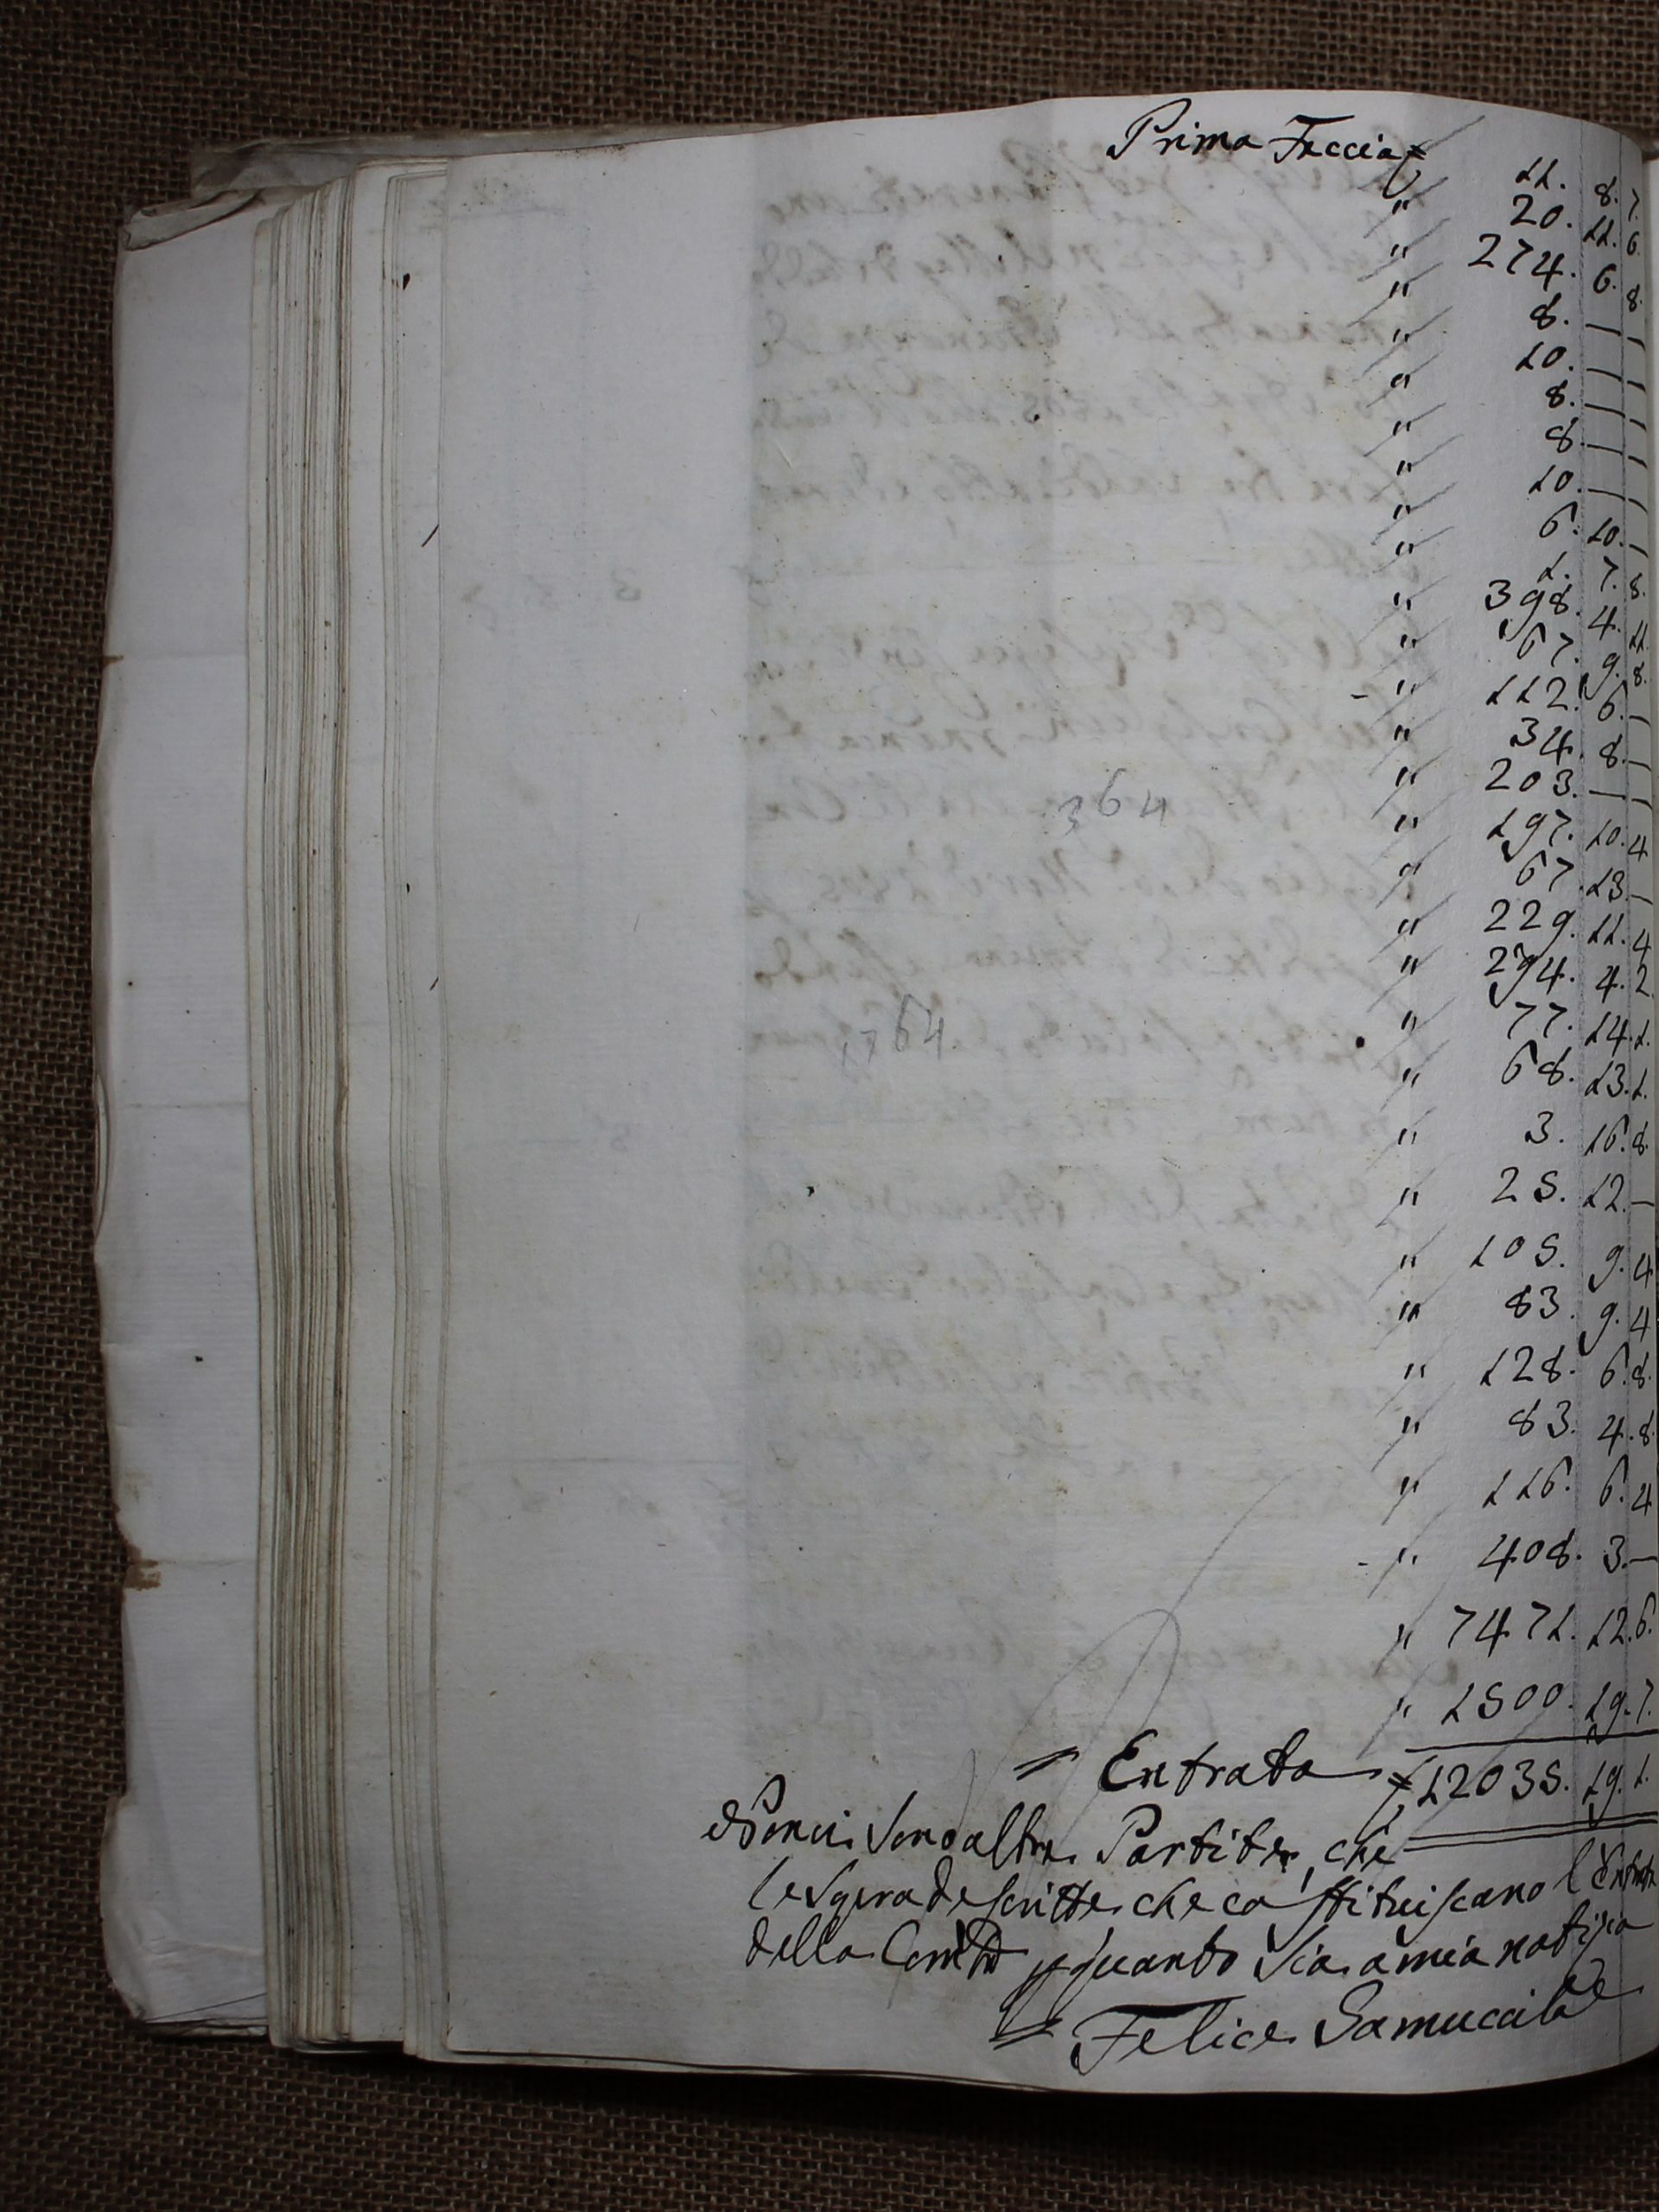 Prima Faccia £ 11. 8. 7.
" 20. 11. 6.
" 274. 6. 8.
" 8. — —
" 10. — —
" 8. — —
" 8. — —
" 10. — —
" 6. 10. —
" 1. 7. 8.
" 398. 4. 11.
" 67. 9. 8.
" 112. 6. —
" 34. 8. —
" 203. — —
" 197. 10. 4
" 67. 13. —
" 229. 11. 4
" 294. 4. 2
" 77. 14. 1.
" 68. 13. 1.
" 3. 16. 8.
" 25. 12. —
" 105. 9. 4
" 83. 9. 4
" 128. 6. 8.
" 83. 4. 8.
" 116. 6. 4
" 408. 3. —
" 7471. 12. 6.
" 1500. 19. 7.
= Entrata £ 12035. 19. 1.
sono altre Partite, che
le sopradescritte che costituiscano l'Entrata
della Comtà p quanto sia a mia notizia
= Felice
364
1764